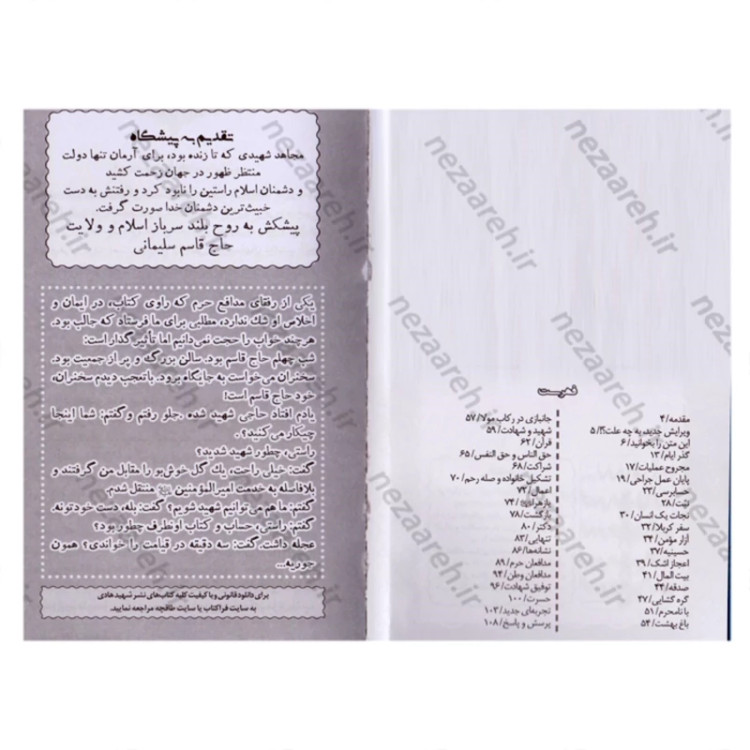 تقدیم به پیشگاه
مجاهد شهیدی که تا زنده بود، برای آرمان تنها دولت
منتظر ظهور در جهان زحمت کشید
و دشمنان اسلام راستین را نابود کرد و رفتنش به دست
خبیث‌ترین دشمنان خدا صورت گرفت.
پیشکش به روح بلند سرباز اسلام و ولایت
حاج قاسم سلیمانی
یکی از رفقای مدافع حرم که راوی کتاب، در ایمان و
اخلاص او شک ندارد، مطلبی برای ما فرستاد که جالب بود.
هرچند خواب را حجت نمی‌دانیم اما تأثیرگذار است:
شب چهلم حاج قاسم بود. سالن بزرگ و پر از جمعیت بود.
سخنران می‌خواست به جایگاه برود. باتعجب دیدم سخنران،
خود حاج قاسم است!
یادم افتاد حاجی شهید شده. جلو رفتم و گفتم: شما اینجا
چیکار می‌کنید؟
راستی، چطور شهید شدید؟
گفت: خیلی راحت، یک گل خوش‌بو را مقابل من گرفتند و
بلافاصله به خدمت امیرالمؤمنین منتقل شدم.
گفتم: ما هم می‌توانیم شهید شویم؟ گفت: بله، دست خودتونه.
گفتم: راستی، حساب و کتاب اونطرف چطور بود؟
عجله داشت. گفت: سه دقیقه در قیامت را خواندی؟ همون
جوریه...
برای دانلود قانونی و با کیفیت کلیه کتاب‌های نشر شهید هادی
به سایت فراکتاب یا سایت طاقچه مراجعه نمایید.
فهرست
مقدمه/۴
ویرایش جدید، به چه علت؟!/۵
این متن را بخوانید/۶
گذر ایام/۱۳
مجروح عملیات/۱۷
پایان عمل جراحی/۱۹
حسابرسی/۲۳
نیت/۲۸
نجات یک انسان/۳۰
سفر کربلا/۳۲
آزار مؤمن/۳۴
حسینیه/۳۷
اعجاز اشک/۳۹
بیت المال/۴۱
صدقه/۴۴
گره گشایی/۴۷
با نامحرم/۵۱
باغ بهشت/۵۴
جانبازی در رکاب مولا/۵۷
شهید و شهادت/۵۹
قرآن/۶۲
حق الناس و حق النفس/۶۵
شراکت/۶۸
تشکیل خانواده و صله رحم/۷۰
اعمال/۷۲
یازهرا/۷۴
بازگشت/۷۸
دکتر/۸۰
تنهایی/۸۳
نشانه‌ها/۸۶
مدافعان حرم/۸۹
مدافعان وطن/۹۳
توفیق شهادت/۹۶
حسرت/۱۰۰
تجربه‌ای جدید/۱۰۳
پرسش و پاسخ/۱۰۸
nezaareh.ir